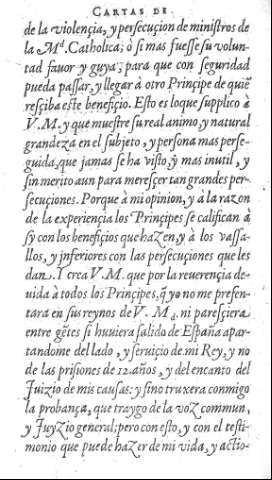 CARTAS DE
de la violençia, y persecuçion de ministros de
la M.d Catholica; ò si mas fuesse su volun-
tad fauor y guya, para que con seguridad
pueda passar, y llegar à otro Prinçipe de quiẽ
resçiba este benefiçio. Esto es loque supplico à
V.M. y que muestre su real animo, y natural
grandeza en el subjeto, y persona mas perse-
guida, que jamas se ha visto, ỹ mas inutil, y
sin merito aun para meresçer tan grandes per-
secuçiones. Porque à mi opinion, y à la razon
de la experiençia los Prinçipes se califican à
sy con los benefiçios que hazen, y à los vassa-
llos, y inferiores con las persecuçiones que les
dan. Y crea V.M. que por la reuerençia de-
uida à todos los Prinçipes, q̃ yo no me presen-
tara en sus reynos de V. M.d. ni paresçiera
entre gẽtes si huuiera salido de España apar-
tandome del lado, y seruiçio de mi Rey, y no
de las prisiones de 12. años, y del encanto del
Juizio de mis causas: y sino truxera conmigo
la probança, que traygo de la voz commun,
y Juyzio general; pero con esto, y con el testi-
monio que puede hazer de mi vida, y actio-